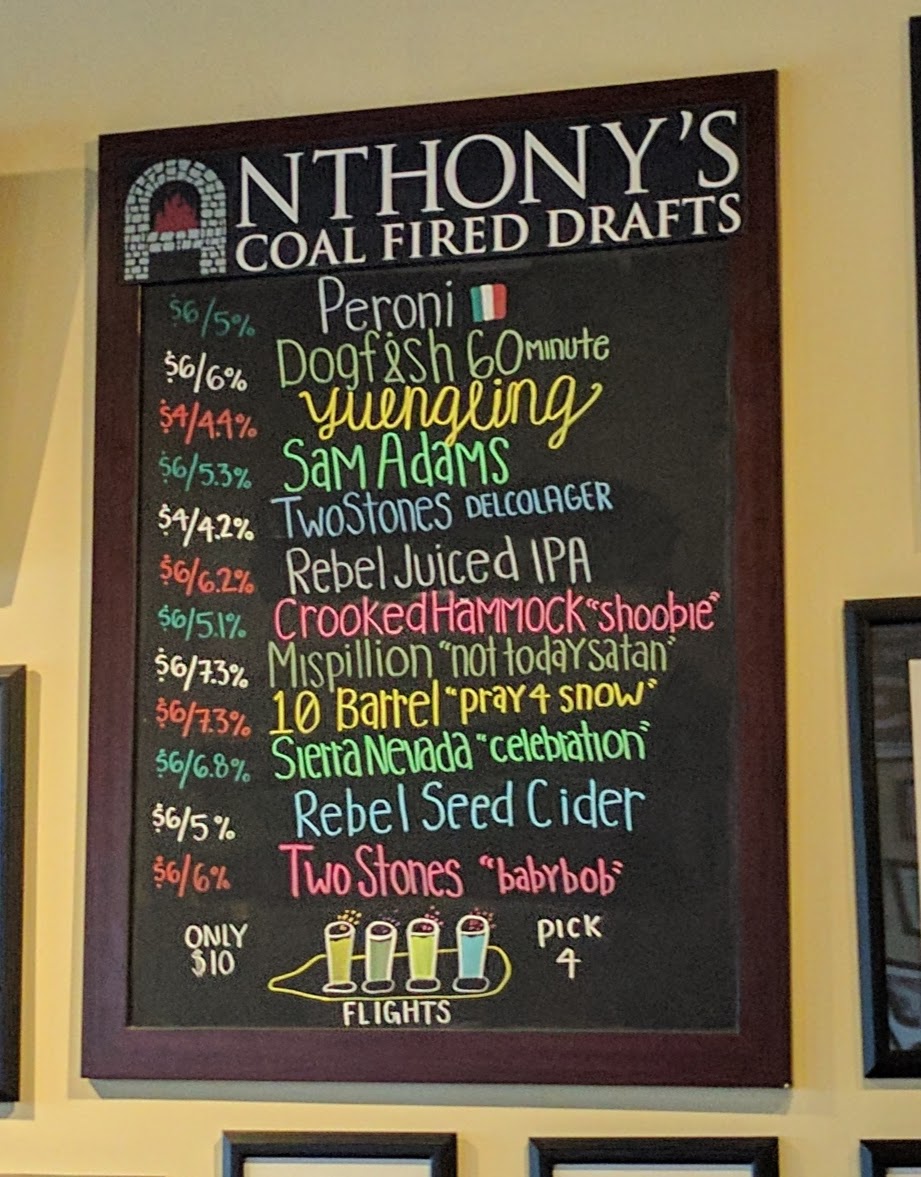 ANTHONY'S
COAL FIRED DRAFTS
$6/5% Peroni
$6/6% Dogfish 60 minute
$4/4.4% yuengling
$6/5.3% Sam Adams
$4/4.2% Two Stones DELCOLAGER
$6/6.2% Rebel Juiced IPA
$6/5.1% Crooked Hammock "shoobie"
$6/7.3% Mispillion "not today satan"
$6/7.3% 10 Barrel "pray 4 snow"
$6/6.8% Sierra Nevada "celebration"
$6/5% Rebel Seed Cider
$6/6% Two Stones "babybob"
ONLY $10
PICK 4
FLIGHTS